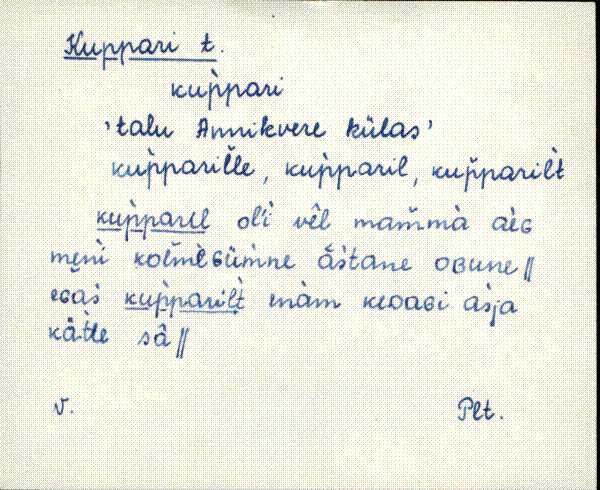 Kuppari t.
kup̀pari
'talu Annikvere külas'
kup̀pariľle, kup̀paril, kup̀pariľt
kup̀paril oĺi vêl mam̆mà aèG
menì kolmèGümne ǟštane oBune ||
eGaś kup̀pariľt enàm keDaGi aśja
kǟtle sâ ||
v. Plt.